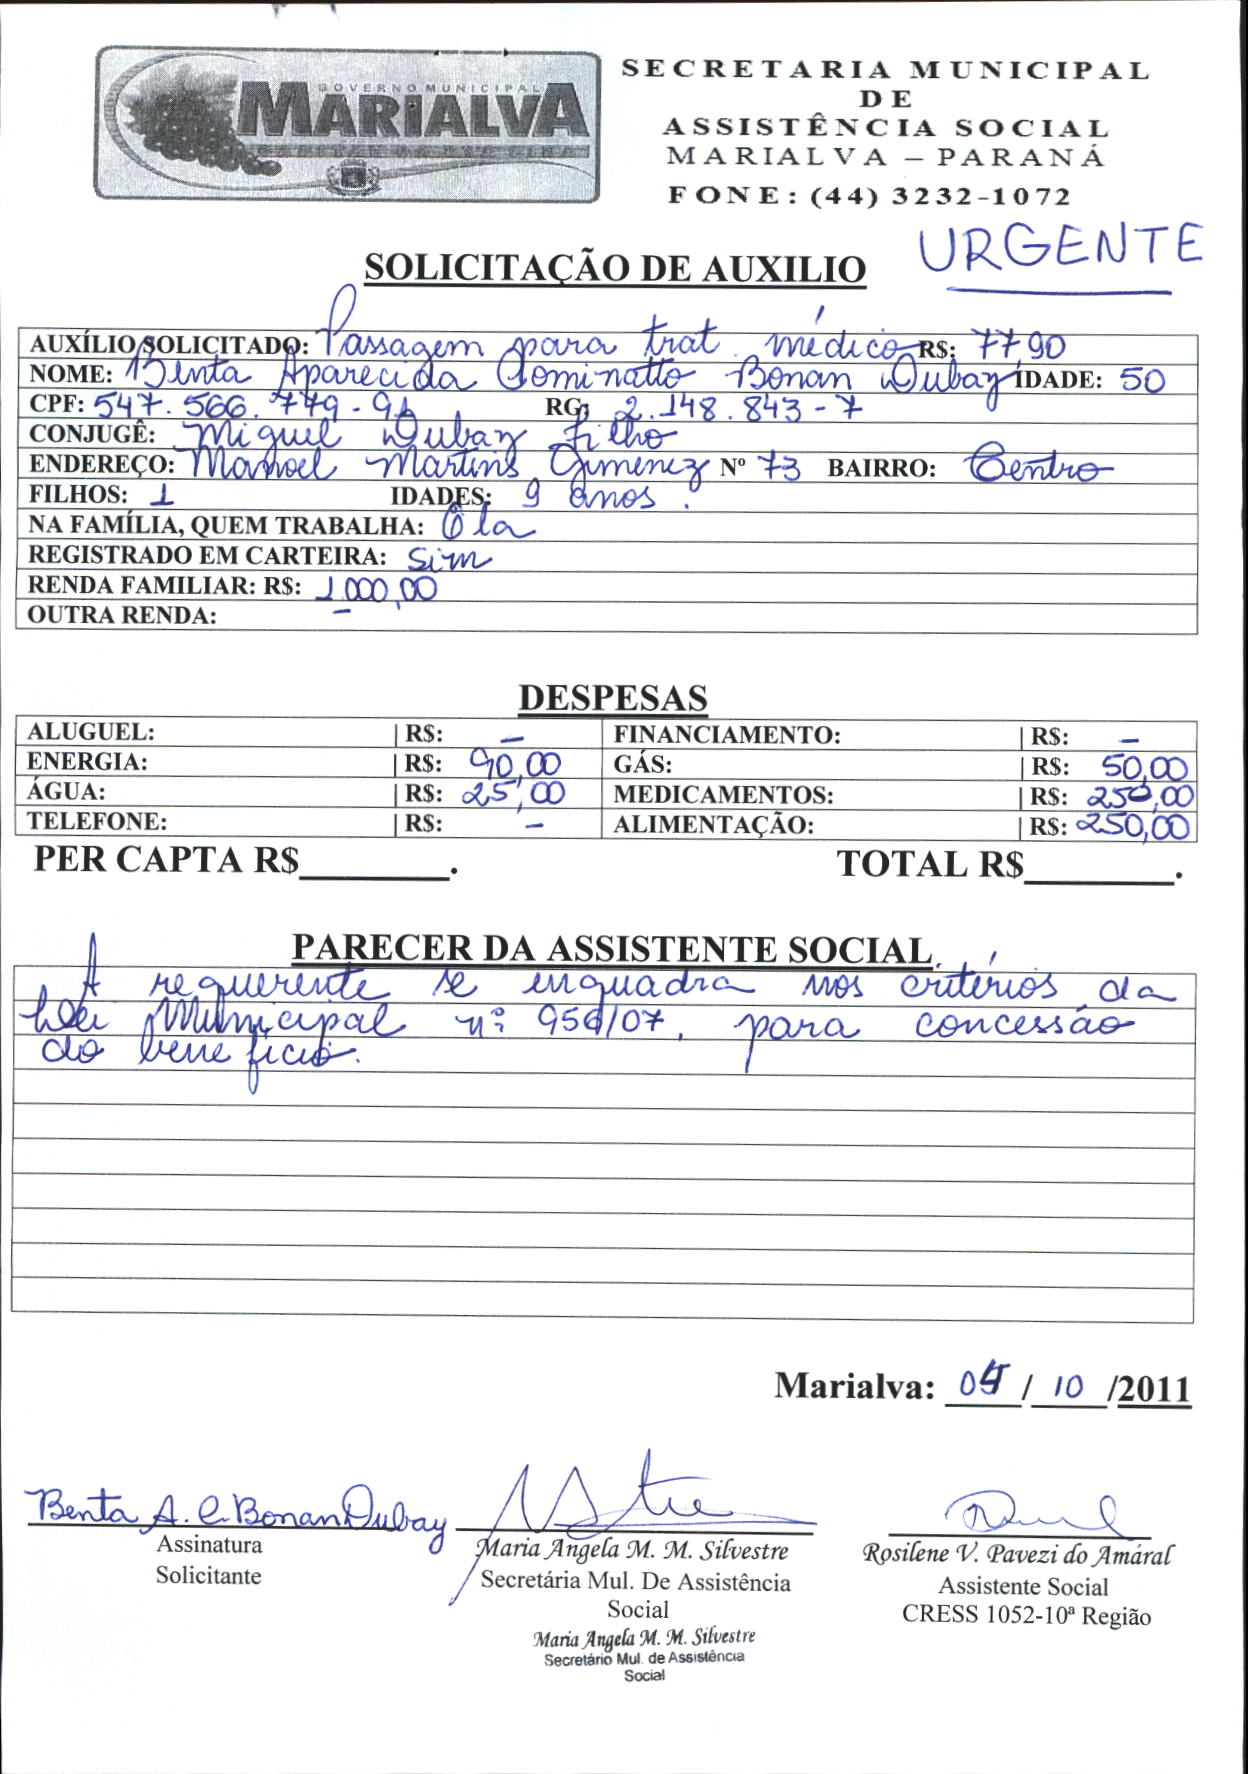 GOVERNO MUNICIPAL
MARIALVA
SECRETARIA MUNICIPAL
DE
ASSISTÊNCIA SOCIAL
MARIALVA – PARANÁ
FONE: (44) 3232-1072
URGENTE
SOLICITAÇÃO DE AUXILIO
AUXÍLIO SOLICITADO: Passagem para trat. médico R$: 77,90
NOME: Benta Aparecida Cominatto Bonan Dubay IDADE: 50
CPF: 547.566.779-91 RG: 2.148.843-7
CONJUGÊ: Miguel Dubay Filho
ENDEREÇO: Manoel Martins Gimenez Nº 73 BAIRRO: Centro
FILHOS: 1 IDADES: 9 anos.
NA FAMÍLIA, QUEM TRABALHA: Ela
REGISTRADO EM CARTEIRA: Sim
RENDA FAMILIAR: R$: 1.000,00
OUTRA RENDA: –
DESPESAS
ALUGUEL: | R$: – FINANCIAMENTO: | R$: –
ENERGIA: | R$: 90,00 GÁS: | R$: 50,00
ÁGUA: | R$: 25,00 MEDICAMENTOS: | R$: 250,00
TELEFONE: | R$: – ALIMENTAÇÃO: | R$: 250,00
PER CAPTA R$________. TOTAL R$________.
PARECER DA ASSISTENTE SOCIAL.
A requerente se enquadra nos critérios da
Lei Municipal nº 956/07, para concessão
do benefício.
Marialva: 04/10/2011
Benta A. C. Bonan Dubay
Assinatura
Solicitante
Maria Angela M. M. Silvestre
Secretária Mul. De Assistência
Social
Maria Angela M. M. Silvestre
Secretário Mul. de Assistência
Social
Rosilene V. Pavezi do Amaral
Assistente Social
CRESS 1052-10ª Região